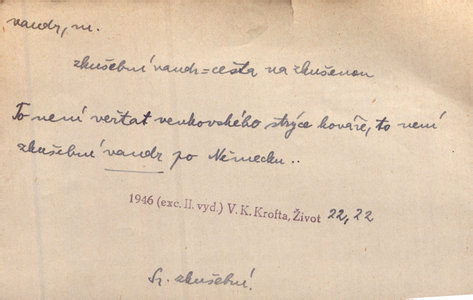 vandr, m.
zkušební vandr = cesta na zkušenou
To není verštat venkovského strýce kováře, to není
zkušební vandr po Německu..
1946 (exc. II. vyd.) V. K. Krofta, Život 22, 22
Sr. zkušební.